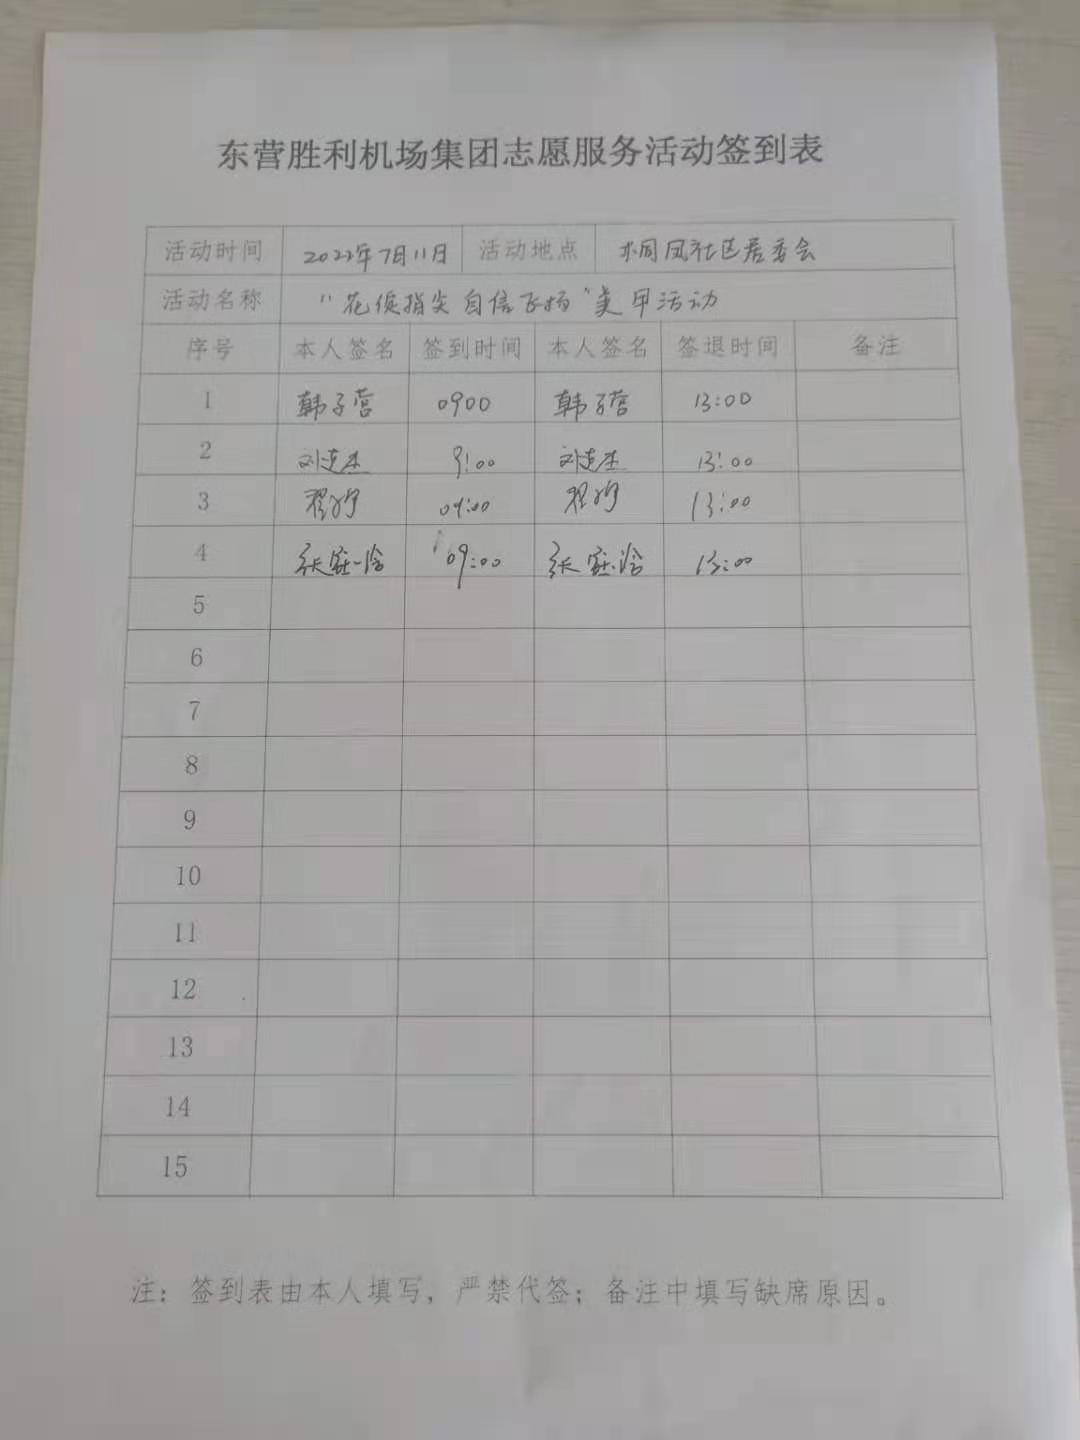 东营胜利机场集团志愿服务活动签到表
活动时间 2022年7月11日 活动地点 桐凤社区居委会
活动名称 "花俱指尖 自信飞扬"美甲活动
序号 本人签名 签到时间 本人签名 签退时间 备注
1 韩子营 0900 韩子营 13:00
2 9:00 13:00
3 09:00 13:00
4 09:00 13:00
5
6
7
8
9
10
11
12
13
14
15
注：签到表由本人填写，严禁代签；备注中填写缺席原因。